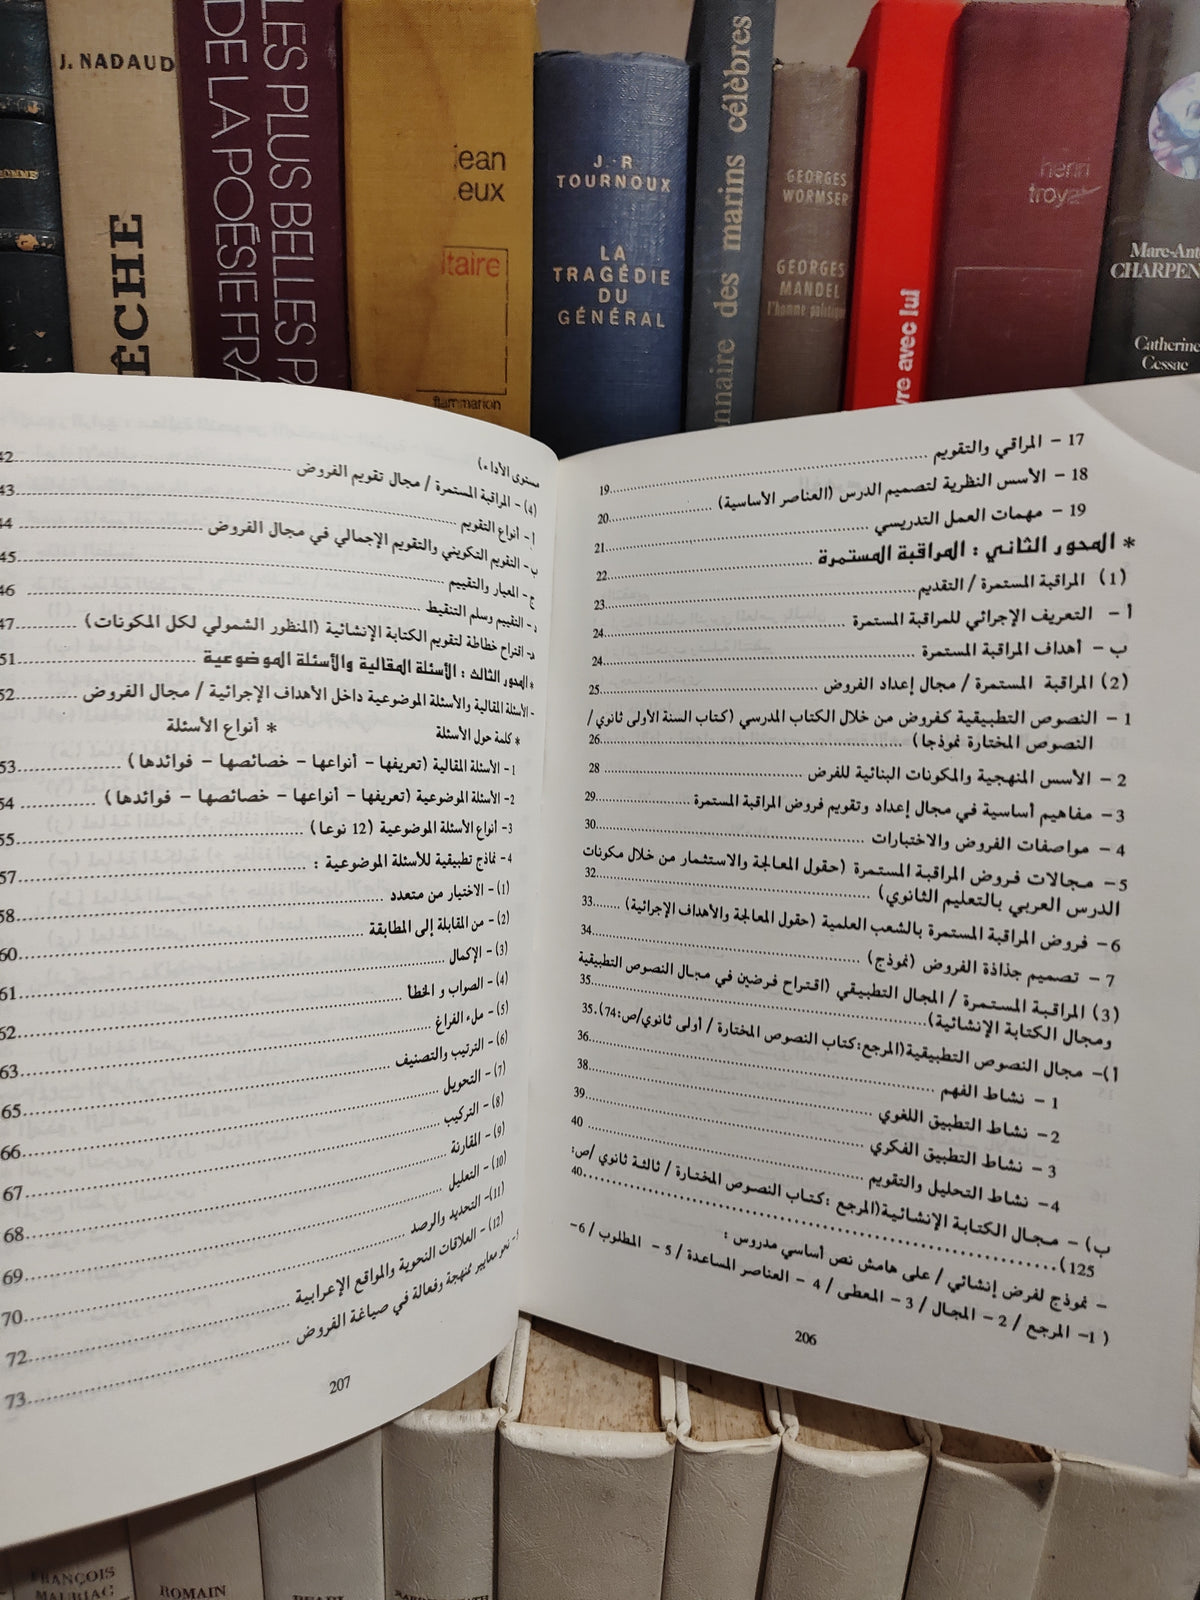 J. NADAUD
ÊCHE
LES PLUS BELLES
DE LA POÉSIE FRA
jean
eux
itaire
flammarion
J. R.
TOURNOUX
LA
TRAGÉDIE
DU
GÉNÉRAL
nnaire des marins célèbres
GEORGES
WORMSER
GEORGES
MANDEL
l'homme politique
vre avec lui
henri
troyat
Marc-Anto
CHARPEN
Catherine
Cessac
17 - المراقي والتقويم 19
18 - الأسس النظرية لتصميم الدرس (العناصر الأساسية) 20
19 - مهمات العمل التدريسي 21
* المحور الثاني : المراقبة المستمرة 22
(1) المراقبة المستمرة / التقديم 23
أ - التعريف الإجرائي للمراقبة المستمرة 24
ب - أهداف المراقبة المستمرة 24
(2) المراقبة المستمرة / مجال إعداد الفروض 25
1 - النصوص التطبيقية كفروض من خلال الكتاب المدرسي (كتاب السنة الأولى ثانوي/
النصوص المختارة نموذجا) 26
2 - الأسس المنهجية والمكونات البنائية للفرض 28
3- مفاهيم أساسية في مجال إعداد وتقويم فروض المراقبة المستمرة 29
4 - مواصفات الفروض والاختبارات 30
5- مجالات فروض المراقبة المستمرة (حقول المعالجة والاستثمار من خلال مكونات
الدرس العربي بالتعليم الثانوي) 32
6- فروض المراقبة المستمرة بالشعب العلمية (حقول المعالجة والأهداف الإجرائية) 33
7 - تصميم جذاذة الفروض (نموذج) 34
(3) المراقبة المستمرة / المجال التطبيقي (اقتراح فرضين في مجال النصوص التطبيقية
ومجال الكتابة الإنشائية) 35
أ)- مجال النصوص التطبيقية(المرجع:كتاب النصوص المختارة / أولى ثانوي/ص:74). 35
1 - نشاط الفهم 36
2- نشاط التطبيق اللغوي 38
3 - نشاط التطبيق الفكري 39
4- نشاط التحليل والتقويم 40
ب) - مجال الكتابة الإنشائية(المرجع :كتاب النصوص المختارة / ثالثة ثانوي /ص:
125) 40
- نموذج لفرض إنشائي / على هامش نص أساسي مدروس :
( 1- المرجع / 2- المجال / 3- المعطى / 4 - العناصر المساعدة / 5 - المطلوب / 6-
206
مستوى الأداء)
(4) - المراقبة المستمرة / مجال تقويم الفروض 42
أ- أنواع التقويم 43
ب- التقويم التكويني والتقويم الإجمالي في مجال الفروض 44
ج - المعيار والتقييم 45
د- التقييم وسلم التنقيط 46
ه- اقتراح خطاطة لتقويم الكتابة الإنشائية (المنظور الشمولي لكل المكونات) 47
* المحور الثالث : الأسئلة المقالية والأسئلة الموضوعية 51
- الأسئلة المقالية والأسئلة الموضوعية داخل الأهداف الإجرائية / مجال الفروض 52
* كلمة حول الأسئلة * أنواع الأسئلة
1- الأسئلة المقالية (تعريفها - أنواعها - خصائصها - فوائدها) 53
2- الأسئلة الموضوعية (تعريفها - أنواعها - خصائصها - فوائدها) 54
3- أنواع الأسئلة الموضوعية (12 نوعا) 55
4- نماذج تطبيقية للأسئلة الموضوعية : 57
(1)- الاختيار من متعدد 58
(2)- من المقابلة إلى المطابقة 60
(3)- الإكمال 61
(4)- الصواب و الخطأ 62
(5)- ملء الفراغ 63
(6)- الترتيب والتصنيف 65
(7)- التحويل 66
(8)- التركيب 67
(9)- المقارنة 68
(10)- التعليل 69
(11)- التحديد والرصد 70
(12)- العلاقات النحوية والمواقع الإعرابية 72
5- نحو معايير ممنهجة وفعالة في صياغة الفروض 73
207
FRANÇOIS
MAURIAC
ROMAIN